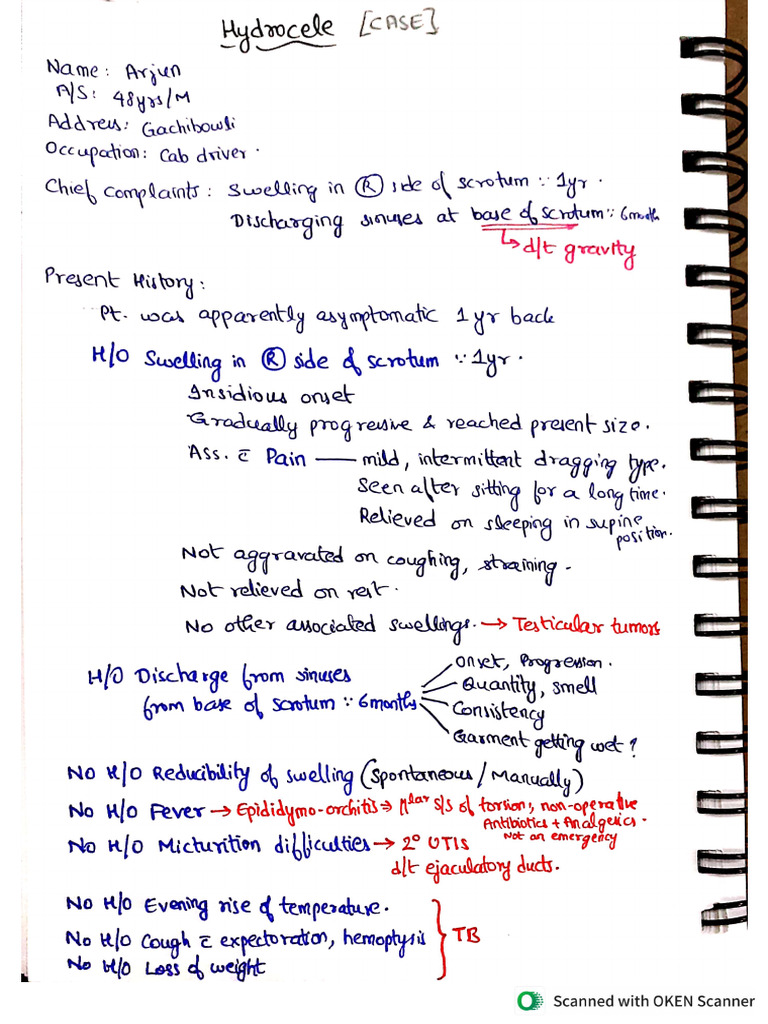 Hydrocele [CASE]
Name: Arjun
A/S: 48yrs/M
Address: Gachibowli
Occupation: Cab driver.
Chief complaints: Swelling in Ⓡ side of scrotum ∵ 1yr.
Discharging sinuses at base of scrotum ∵ 6month
↳ d/t gravity
Present History:
Pt. was apparently asymptomatic 1 yr back
H/O Swelling in Ⓡ side of scrotum ∵ 1yr.
Insidious onset
Gradually progressive & reached present size.
Ass. c̄ Pain — mild, intermittent dragging type.
Seen after sitting for a long time.
Relieved on sleeping in supine
position.
Not aggravated on coughing, straining.
Not relieved on rest.
No other associated swellings. → Testicular tumors
H/O Discharge from sinuses
from base of scrotum ∵ 6months
Onset, Progression.
Quantity, smell
Consistency
Garment getting wet?
No H/O Reducibility of swelling (Spontaneous/Manually)
No H/O Fever → Epididymo-orchitis ⇒ Mlar S/S of torsion, non-operative
Antibiotics + Analgesics.
Not an emergency
No H/O Micturition difficulties → 2° UTIS
d/t ejaculatory ducts.
No H/O Evening rise of temperature.
No H/O Cough c̄ expectoration, hemoptysis } TB
No H/O Loss of weight
Scanned with OKEN Scanner